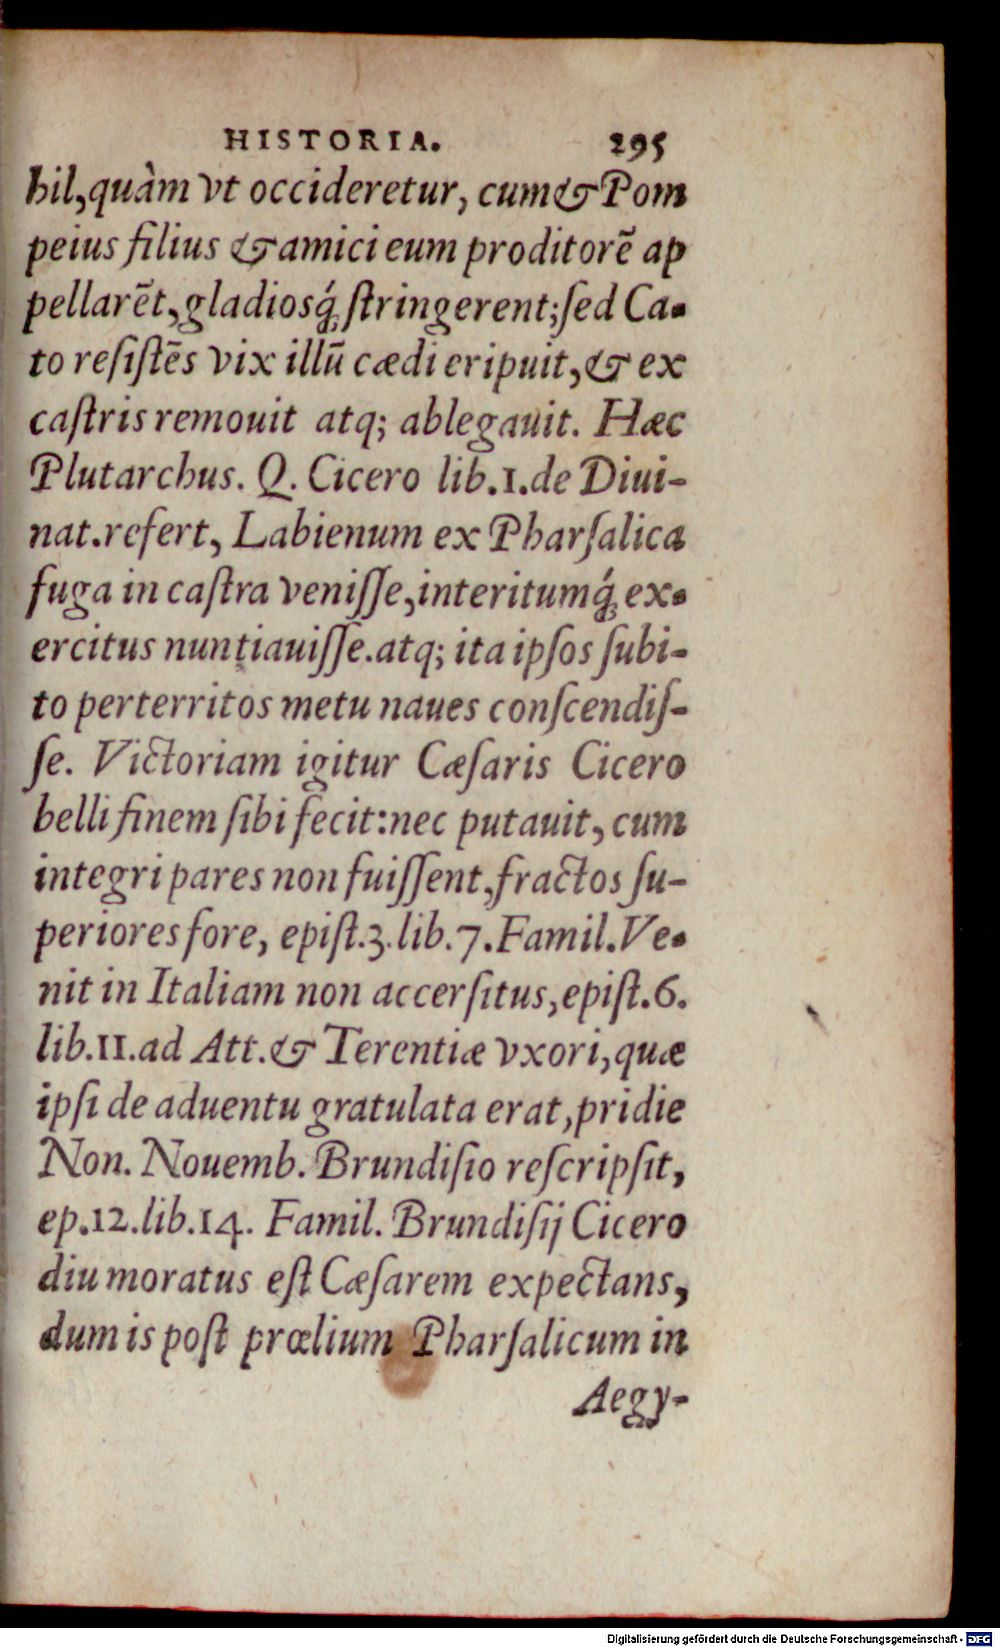 HISTORIA. 295
hil, quàm vt occideretur, cum & Pom
peius filius & amici eum proditorē ap
pellarēt, gladiosq́; ſtringerent; ſed Ca-
to reſiſtēs vix illū cædi eripuit, & ex
caſtris remouit atq; ablegauit. Hæc
Plutarchus. Q. Cicero lib.1.de Diui-
nat.refert, Labienum ex Pharſalica
fuga in caſtra veniſſe, interitumq́; ex-
ercitus nuntiauiſſe.atq; ita ipſos ſubi-
to perterritos metu naues conſcendiſ-
ſe. Victoriam igitur Cæſaris Cicero
belli finem ſibi fecit: nec putauit, cum
integri pares non fuiſſent, fractos ſu-
periores fore, epiſt.3.lib.7.Famil.Ve-
nit in Italiam non accerſitus, epiſt.6.
lib.11.ad Att.& Terentiæ vxori, quæ
ipſi de aduentu gratulata erat, pridie
Non. Nouemb. Brundiſio reſcripſit,
ep.12.lib.14. Famil. Brundiſij Cicero
diu moratus eſt Cæſarem expectans,
dum is poſt prœlium Pharſalicum in
Aegy-
Digitalisierung gefördert durch die Deutsche Forschungsgemeinschaft - DFG